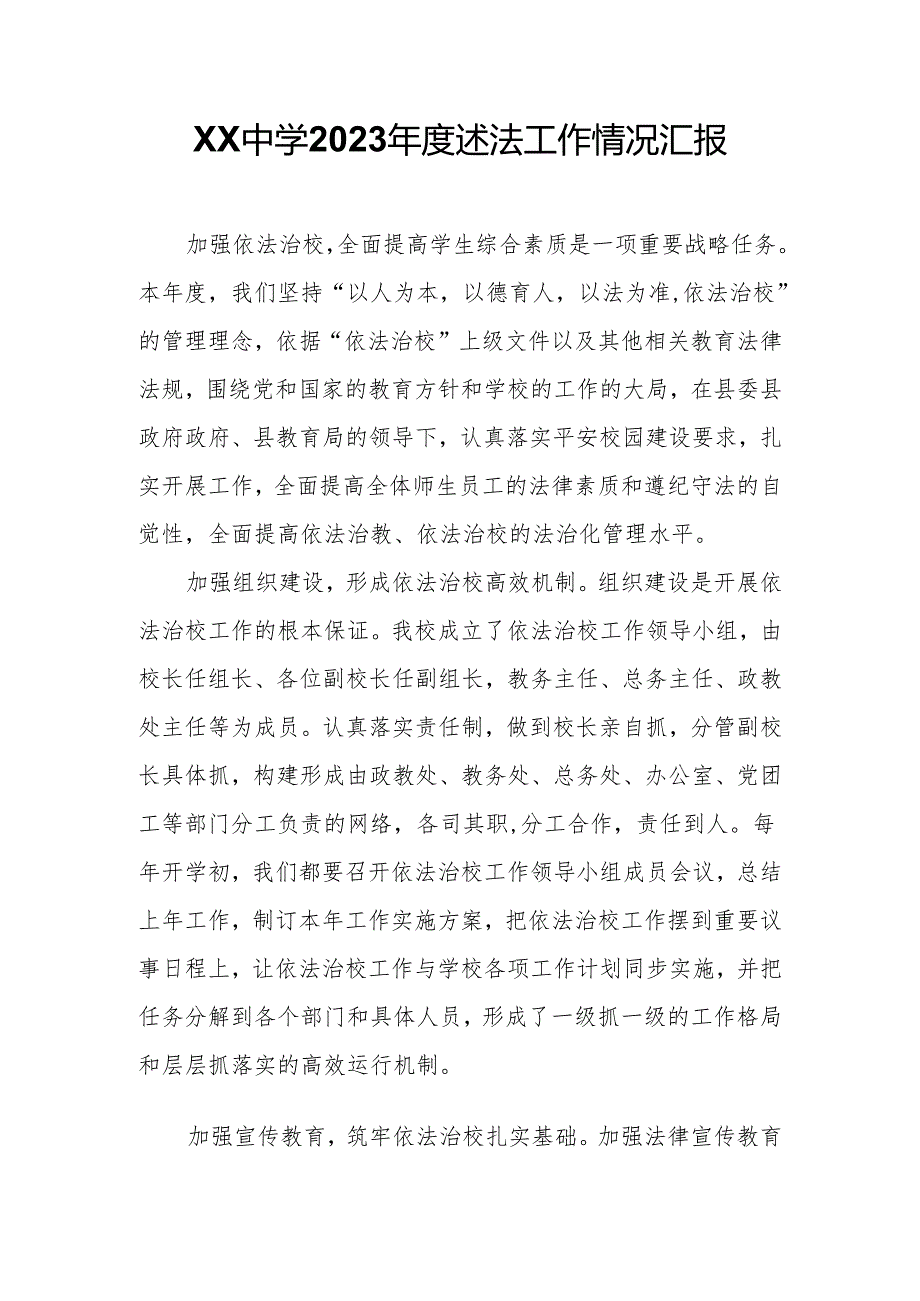 XX中学2023年度述法工作情况汇报
加强依法治校,全面提高学生综合素质是一项重要战略任务。
本年度，我们坚持“以人为本，以德育人，以法为准,依法治校”
的管理理念，依据“依法治校”上级文件以及其他相关教育法律
法规，围绕党和国家的教育方针和学校的工作的大局，在县委县
政府政府、县教育局的领导下，认真落实平安校园建设要求，扎
实开展工作，全面提高全体师生员工的法律素质和遵纪守法的自
觉性，全面提高依法治教、依法治校的法治化管理水平。
加强组织建设，形成依法治校高效机制。组织建设是开展依
法治校工作的根本保证。我校成立了依法治校工作领导小组，由
校长任组长、各位副校长任副组长，教务主任、总务主任、政教
处主任等为成员。认真落实责任制，做到校长亲自抓，分管副校
长具体抓，构建形成由政教处、教务处、总务处、办公室、党团
工等部门分工负责的网络，各司其职,分工合作，责任到人。每
年开学初，我们都要召开依法治校工作领导小组成员会议，总结
上年工作，制订本年工作实施方案，把依法治校工作摆到重要议
事日程上，让依法治校工作与学校各项工作计划同步实施，并把
任务分解到各个部门和具体人员，形成了一级抓一级的工作格局
和层层抓落实的高效运行机制。
加强宣传教育，筑牢依法治校扎实基础。加强法律宣传教育